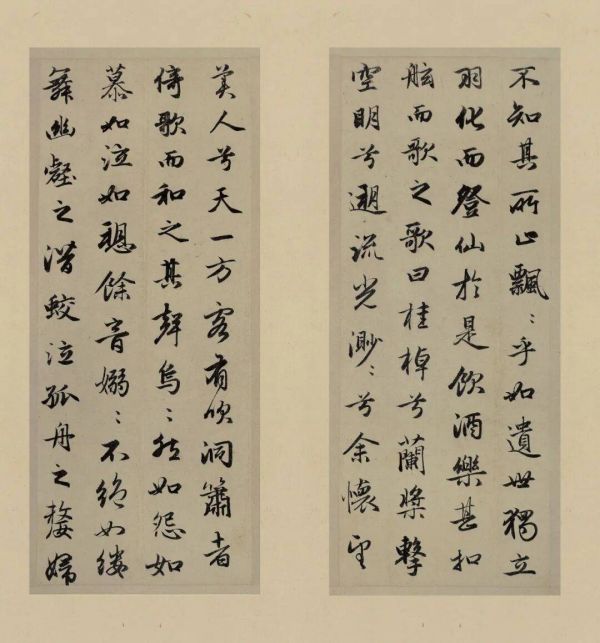 不知其所止飄〻乎如遺世獨立
羽化而登仙於是飲酒樂甚扣
舷而歌之歌曰桂棹兮蘭槳擊
空明兮遡流光渺〻兮余懷望
美人兮天一方客有吹洞簫者
倚歌而和之其聲烏〻然如怨如
慕如泣如愬餘音嫋〻不絕如縷
舞幽壑之潛蛟泣孤舟之嫠婦